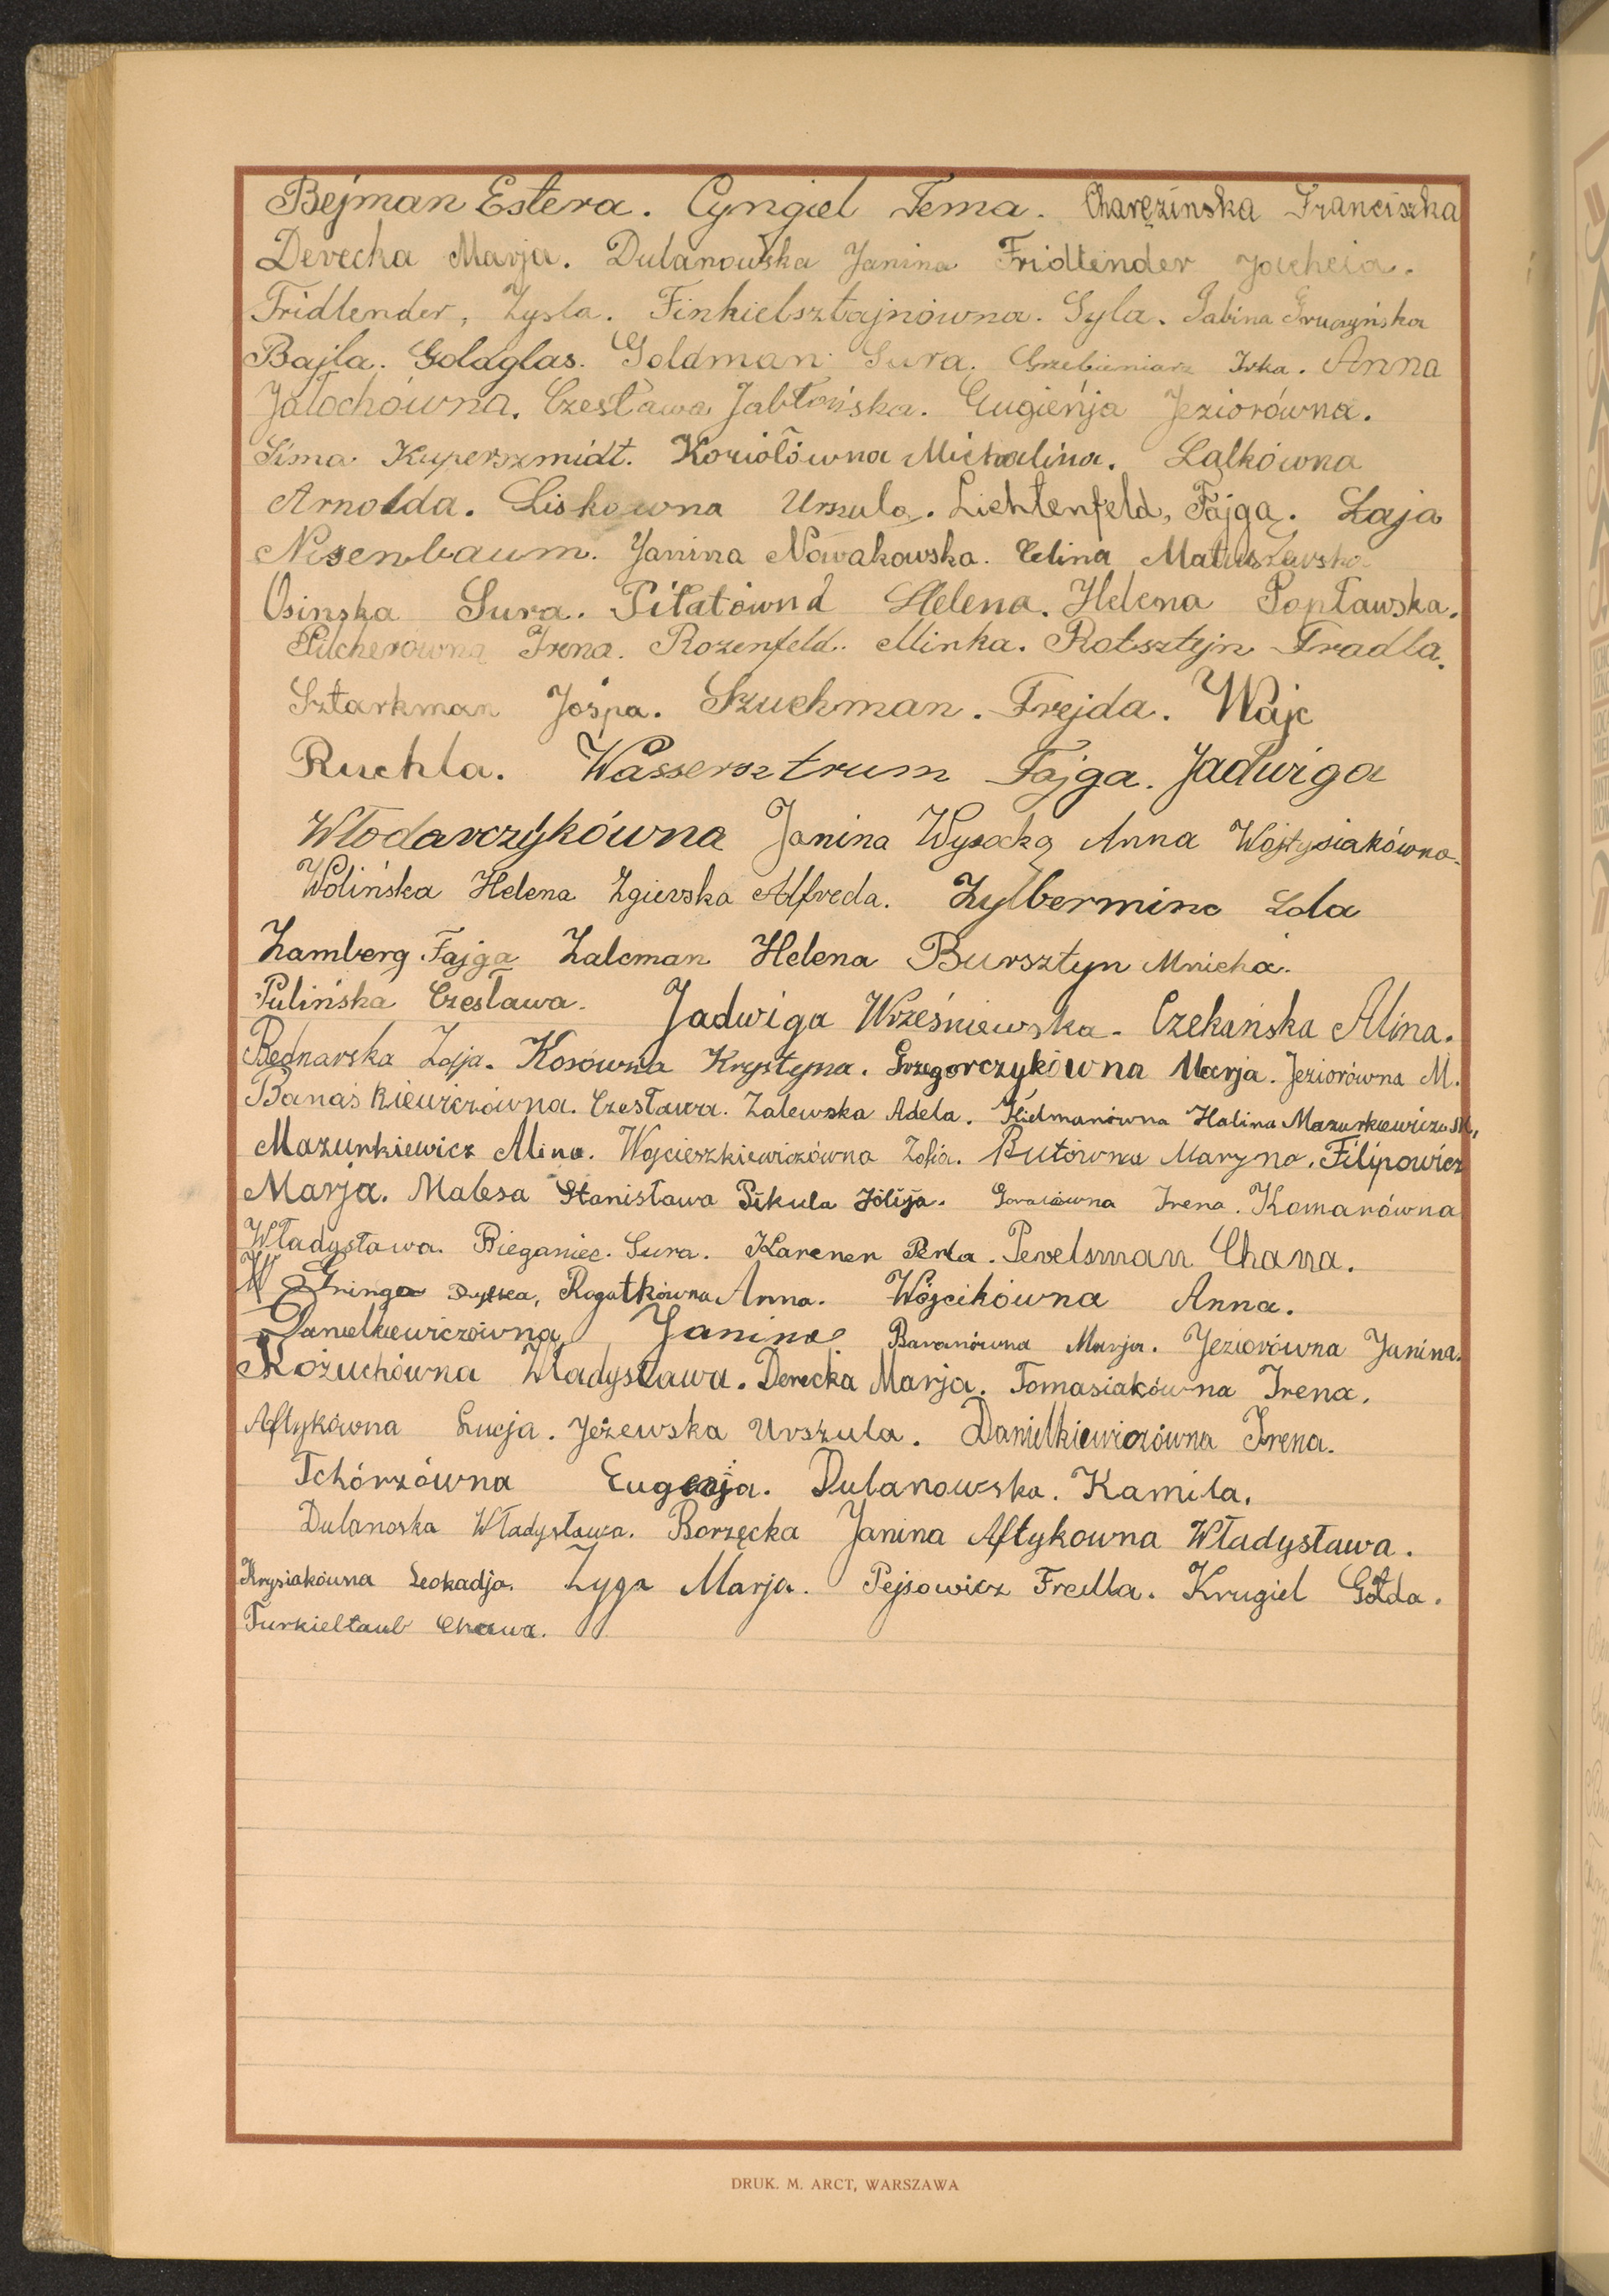 Bejman Estera. Cyngiel Tema. Charęzińska Franciszka
Derecka Marja. Dulanowska Janina Fridlender Jachcia.
Fridlender, Zysla. Finkielsztajnówna. Gyla. Sabina Gruczyńska
Bajla. Goldglas. Goldman Sura. Grzebieniarz Iska. Anna
Jałochówna. Czesława Jabłońska. Eugienja Jeziorówna.
Sima Kuperszmidt. Koziołówna Michalina. Lalkówna
Arnolda. Liskówna Urszula. Lichtenfeld, Fajga. Łaja
Nisenbaum. Janina Nowakowska. Celina Matuszewska
Osinska Sura. Piłatówna Helena. Helena Popławska.
Pilcherówna Irena. Rozenfeld. Minka. Rotsztejn Fradla.
Sztarkman Jospa. Szuchman. Frejda. Wajc
Ruchla. Wassersztrum Fajga. Jadwiga
Włodarczykówna Janina Wysocka Anna Wojtysiakówna.
Wolińska Helena Zgierska Alfreda. Zylberminc Lola
Zamberg Fajga Zalcman Helena Bursztyn Mnicha.
Pulińska Czesława. Jadwiga Wrześniewska. Czekańska Alina.
Bednarska Łaja. Kosówna Krystyna. Grzegorczykówna Marja. Jeziorówna M.
Banaśkiewiczówna. Czesława. Zalewska Adela. Hidmanówna Halina Mazurkiewicz M,
Mazurkiewicz Alina. Wojcieszkiewiczówna Zofia. Butówna Maryna. Filipowicz
Marja. Malesa Stanisława Pikula Jólija. Goralówna Irena. Komarówna
Władysława. Bieganiec. Sura. Karener Perla. Perelsman Chana.
W Gringa Dyska, Rogatkówna Anna. Wójcikówna Anna.
Danielkiewiczówna Janina Baranówna Marja. Jeziorówna Janina.
Kożuchówna Władysława. Derecka Marja. Tomasiakówna Irena.
Aftykówna Łucja. Jeżewska Urszula. Danielkiewiczówna Irena.
Tchórzówna Eugenja. Dulanowska. Kamila.
Dulanoska Władysława. Borzęcka Janina Aftykowna Władysława.
Krysiakówna Leokadja. Zyga Marja. Pejsowicz Fredla. Krugiel Gołda.
Turkieltaub Chawa.
DRUK. M. ARCT, WARSZAWA